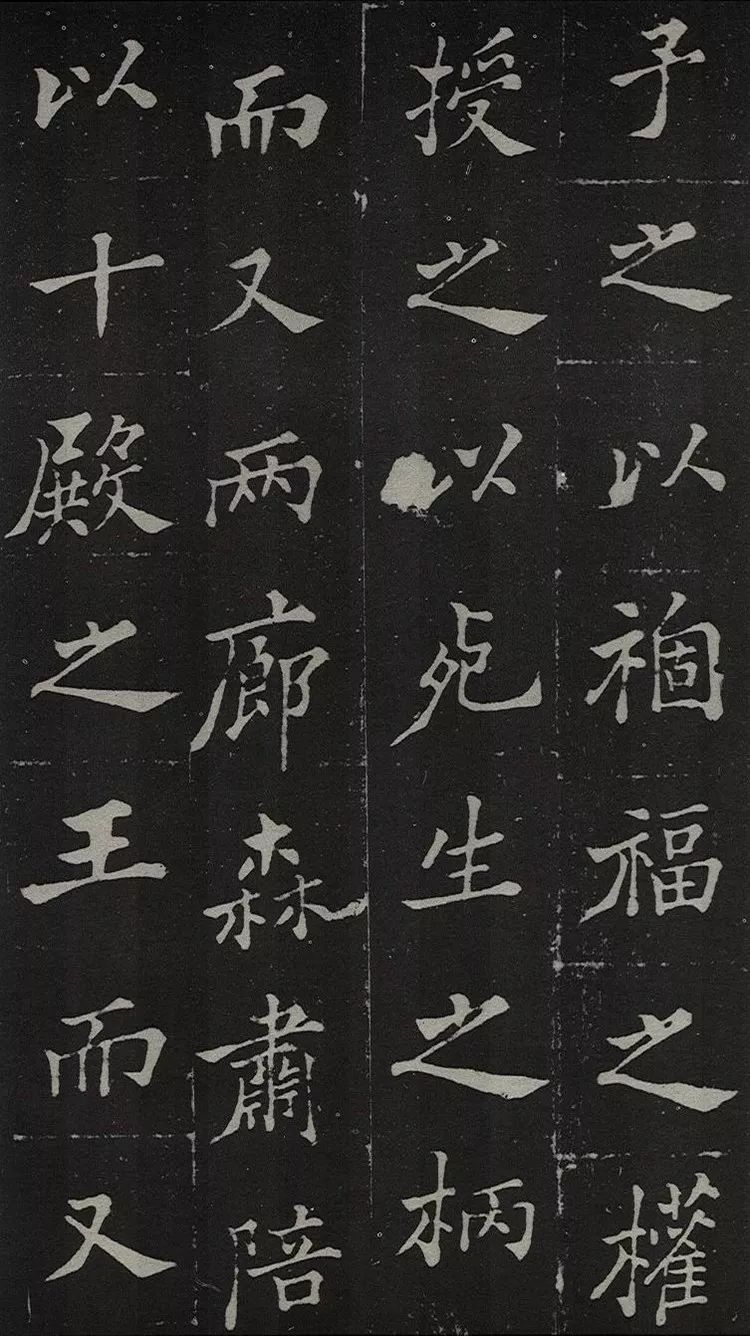 子之以𥚽福之權
授之以死生之柄
而又两廊森肅陪
以十殿之王而又